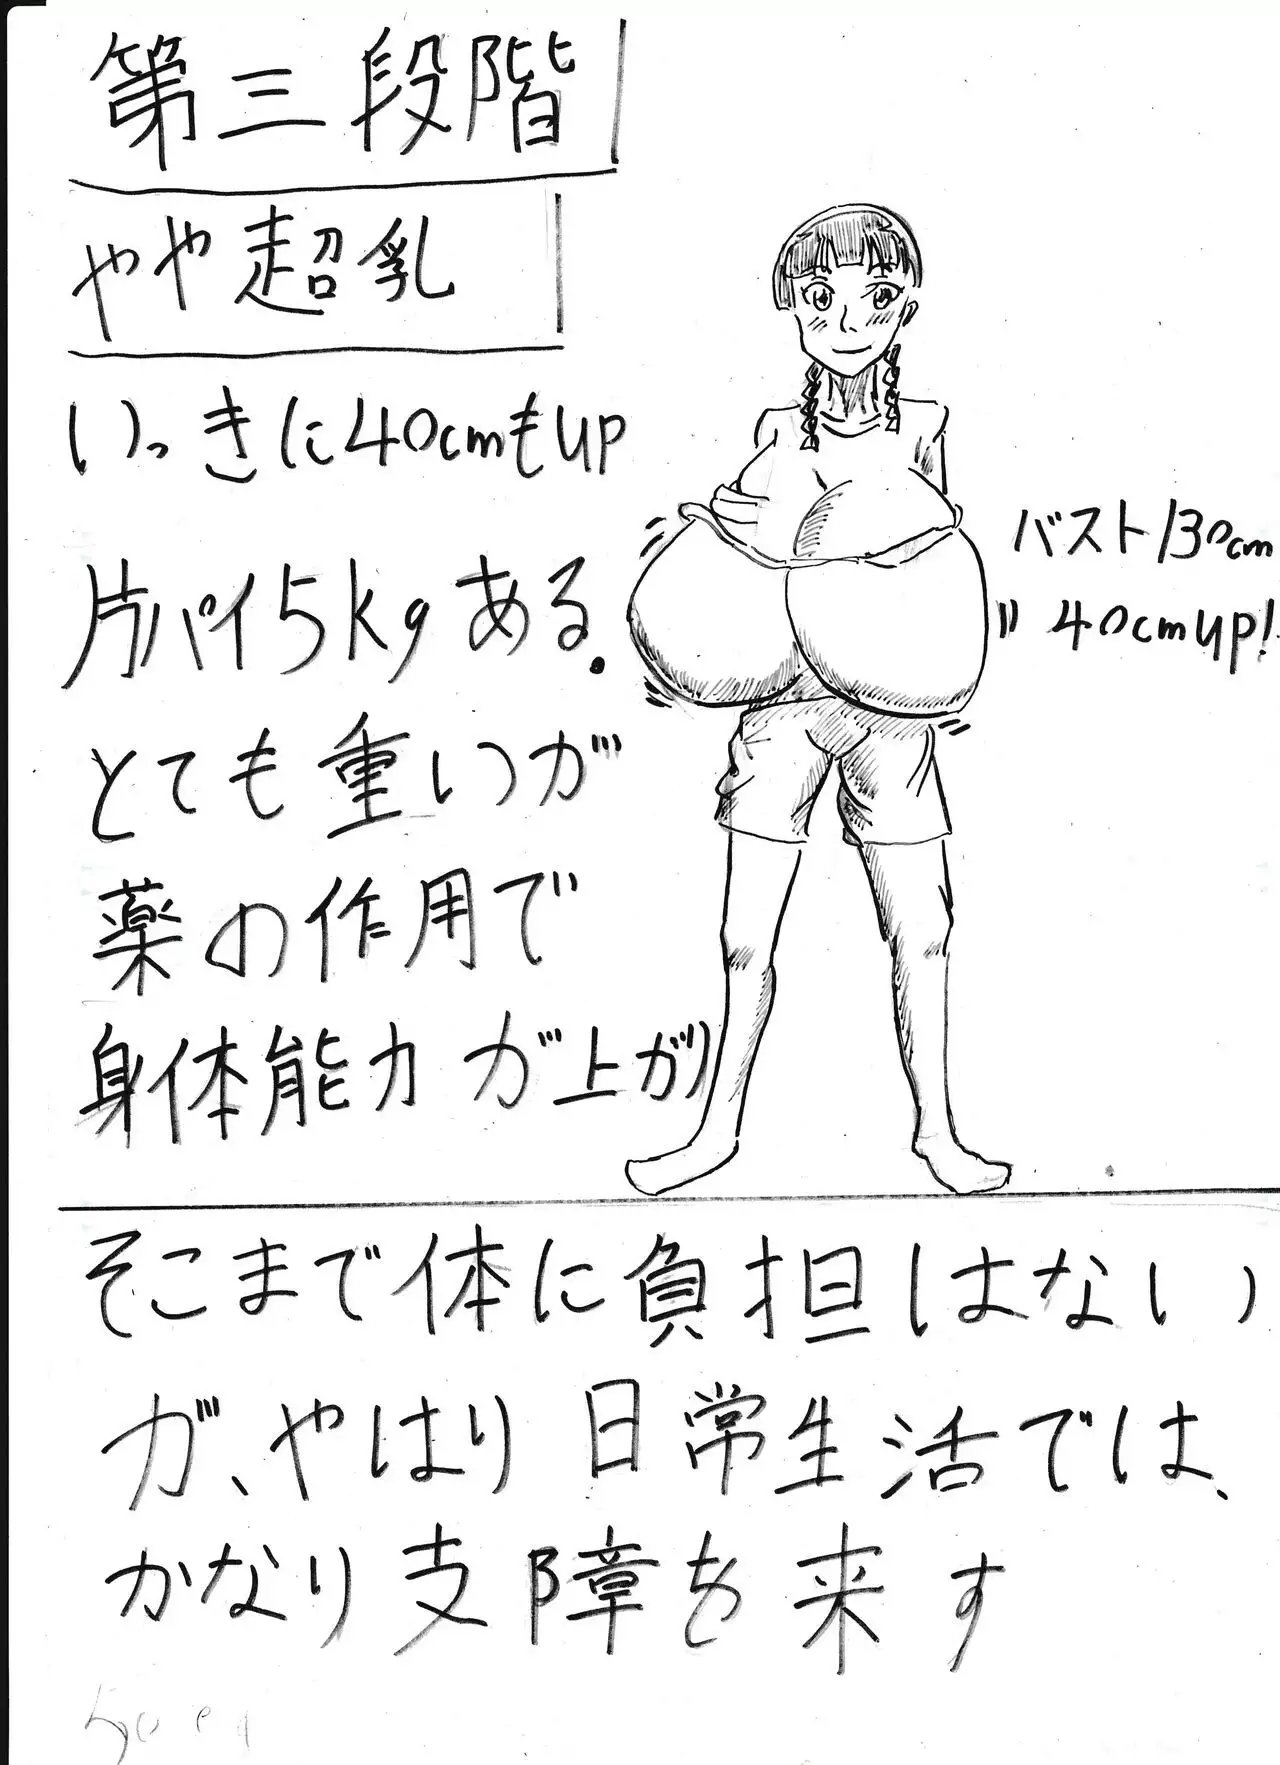 第三段階
やや超乳
いっきに40cmもup
片パイ5kgある.
とても重いが
薬の作用で
身体能力が上がり
バスト130cm
40cmup!
そこまで体に負担はない
が、やはり日常生活では、
かなり支障を来す